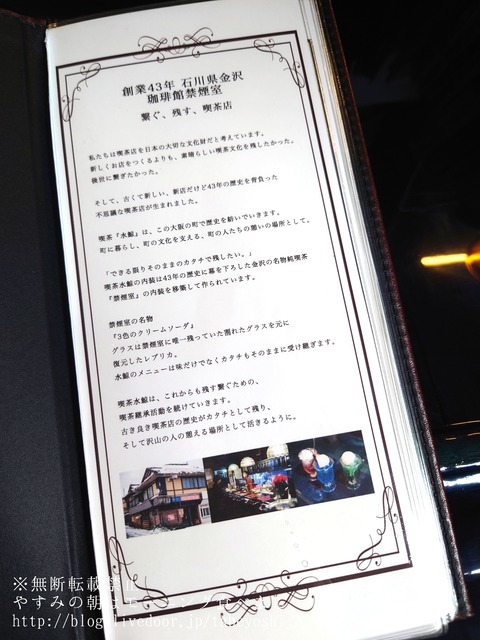 創業43年 石川県金沢
珈琲館禁煙室
繋ぐ、残す、喫茶店
私たちは喫茶店を日本の大切な文化財だと考えています。
新しくお店をつくるよりも、素晴らしい喫茶文化を残したかった。
後世に繋ぎたかった。
そして、古くて新しい、新店だけど43年の歴史を背負った
不思議な喫茶店が生まれました。
喫茶『水鯨』は、この大阪の町で歴史を紡いでいきます。
町に暮らし、町の文化を支える、町の人たちの憩いの場所として。
「できる限りそのままのカタチで残したい。」
喫茶水鯨の内装は43年の歴史に幕を下ろした金沢の名物純喫茶
『禁煙室』の内装を移築して作られています。
禁煙室の名物
『3色のクリームソーダ』
グラスは禁煙室に唯一残っていた割れたグラスを元に
復元したレプリカ。
水鯨のメニューは味だけでなくカタチもそのままに受け継ぎます。
喫茶水鯨は、これからも残す繋ぐための、
喫茶継承活動を続けていきます。
古き良き喫茶店の歴史がカタチとして残り、
そして沢山の人の憩える場所として活きるように。
※無断転載禁止
やすみの朝はモーニング
http://blog.livedoor.jp/